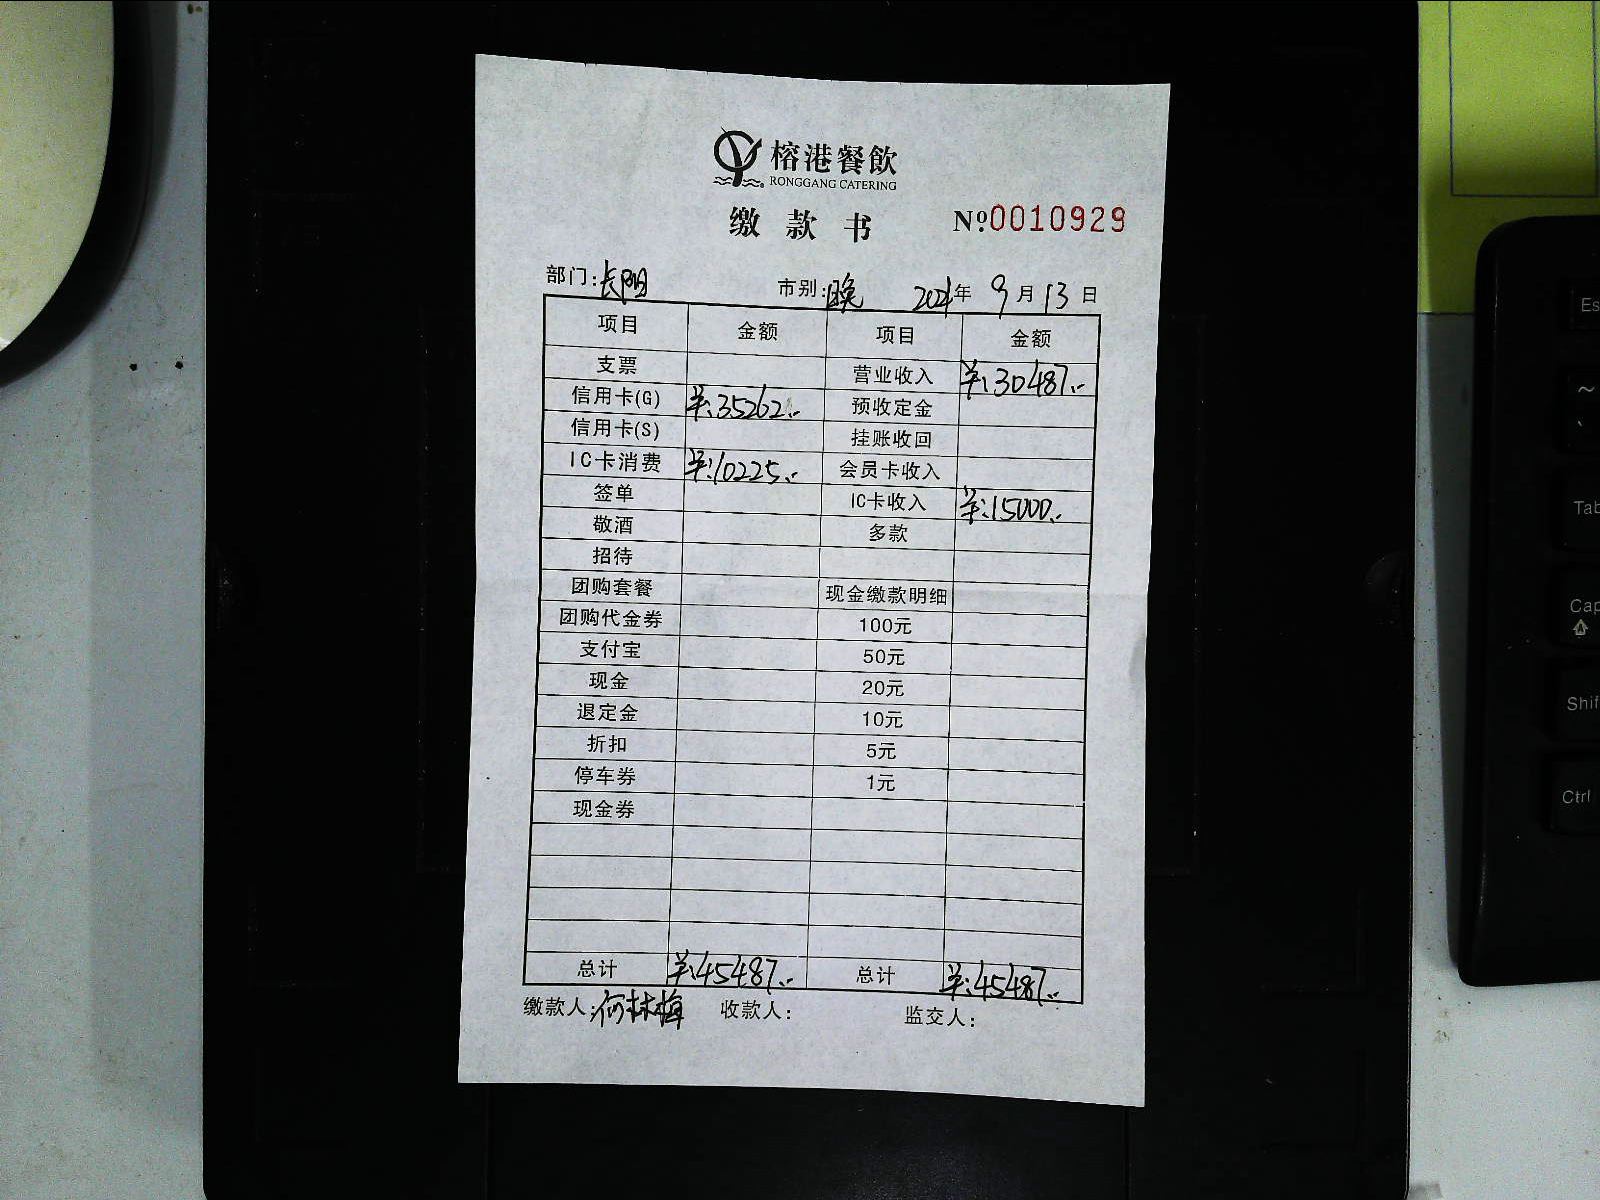 榕港餐飲
RONGGANG CATERING
缴款书 №:0010929
部门:长阳 市别:晚 2021年 9月 13日
项目 金额 项目 金额
支票 营业收入 ¥:30487.-
信用卡(G) ¥:35262.- 预收定金
信用卡(S) 挂账收回
IC卡消费 ¥:10225.- 会员卡收入
签单 IC卡收入 ¥:15000.-
敬酒 多款
招待
团购套餐 现金缴款明细
团购代金券 100元
支付宝 50元
现金 20元
退定金 10元
折扣 5元
停车券 1元
现金券
总计 ¥:45487.- 总计 ¥:45487.-
缴款人:何林梅 收款人: 监交人:
Es
~
Tab
Cap
Shif
Ctrl